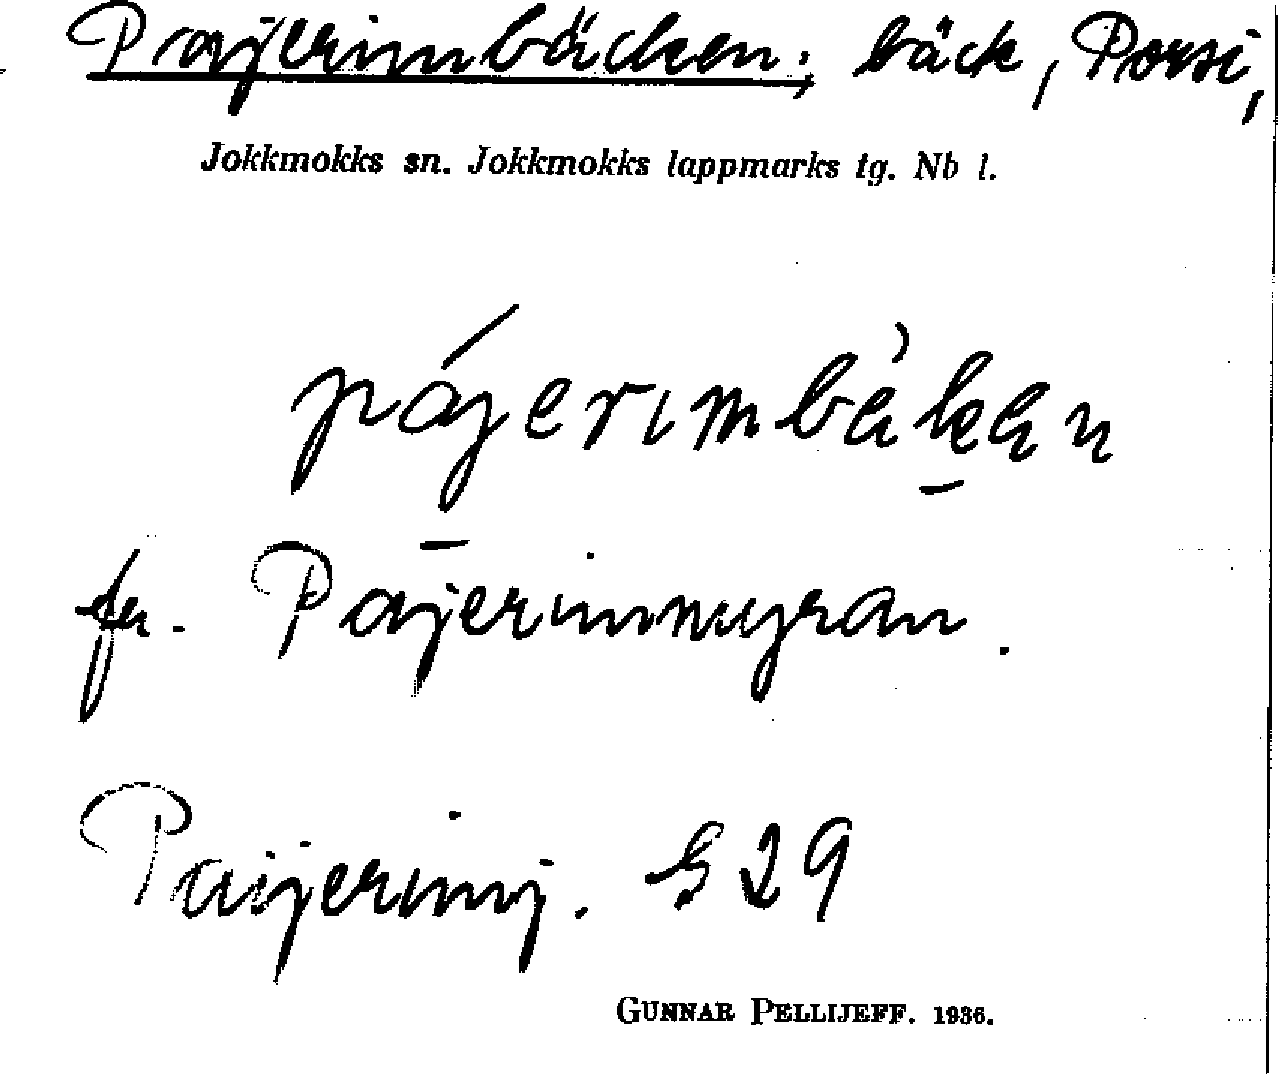 Pajerimbäcken, bäck, Porsi,
Jokkmokks sn. Jokkmokks lappmarks tg. Nb l.
pájerımbä̀kan
fr. Pājerimmyran.
Paijerimj. S 29
GUNNAR PELLIJEFF. 1936.